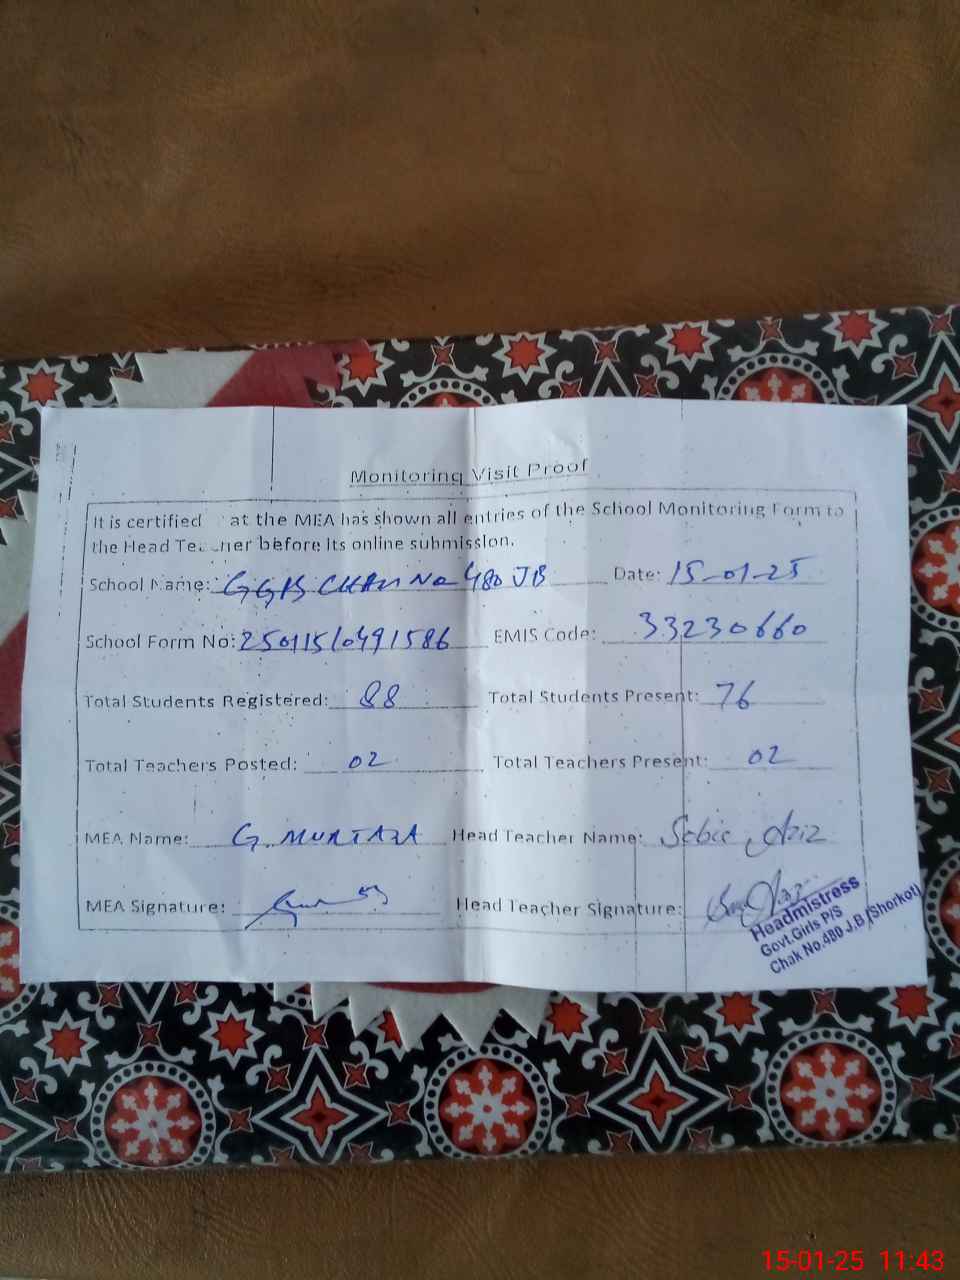 Monitoring Visit Proof
It is certified at the MEA has shown all entries of the School Monitoring Form to
the Head Teacher before its online submission.
School Name: GGPS CHAK No 480 JB Date: 15-01-25
School Form No: 25011510491586 EMIS Code: 33230660
Total Students Registered: 88 Total Students Present: 76
Total Teachers Posted: 02 Total Teachers Present: 02
MEA Name: G. MURTAZA Head Teacher Name: Sobia Aziz
MEA Signature: Head Teacher Signature:
Headmistress
Govt.Girls P/S
Chak No.480 J.B (Shorkot)
15-01-25 11:43